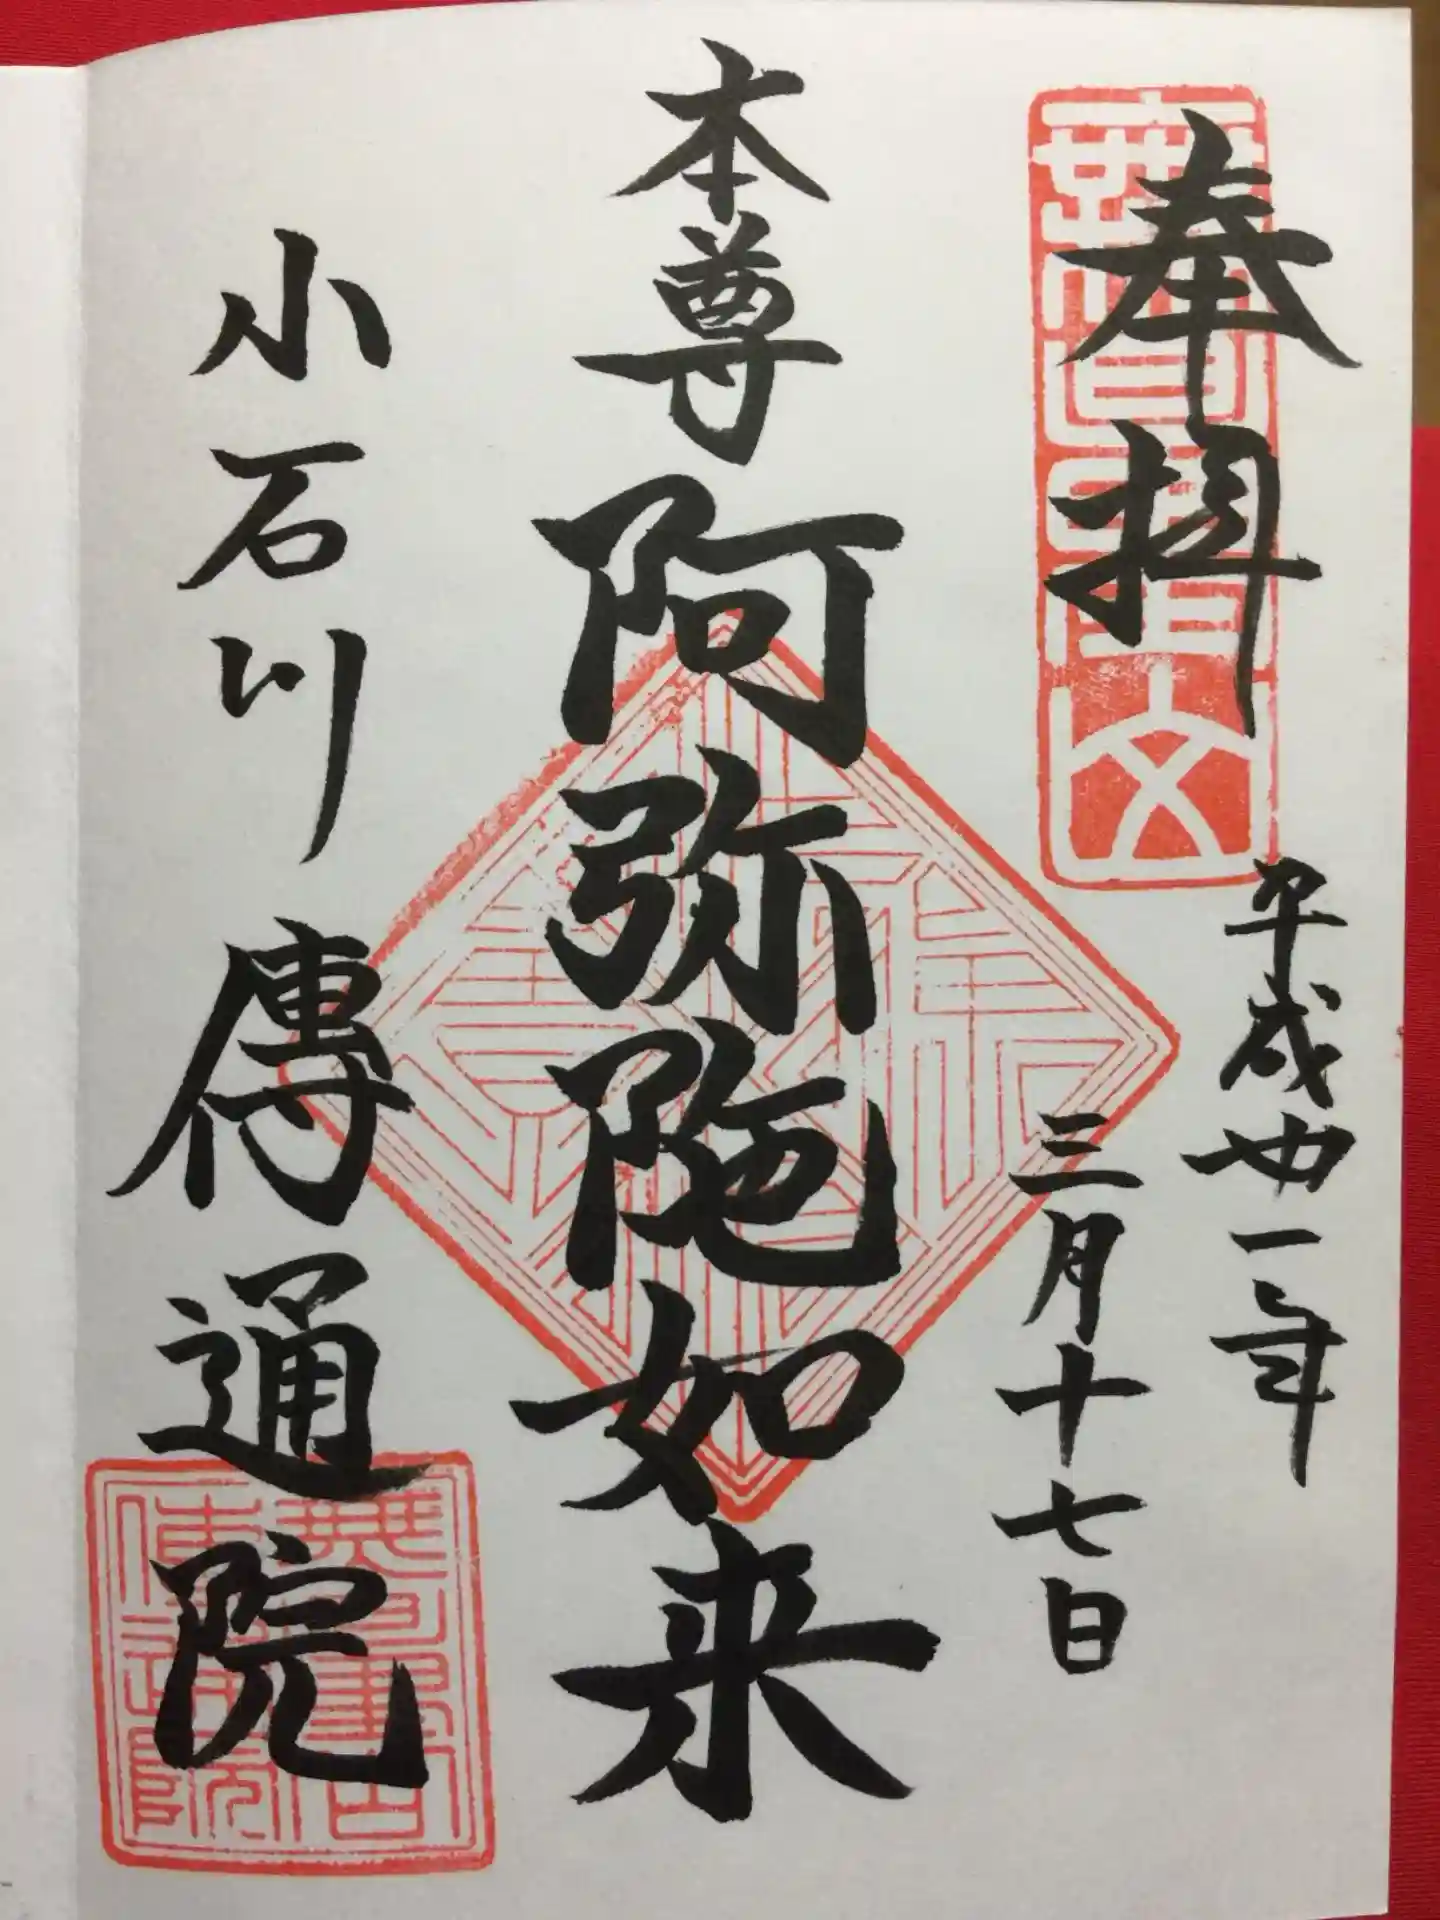 奉拝
平成廿一年
三月十七日
本尊阿弥陀如来
小石川傳通院